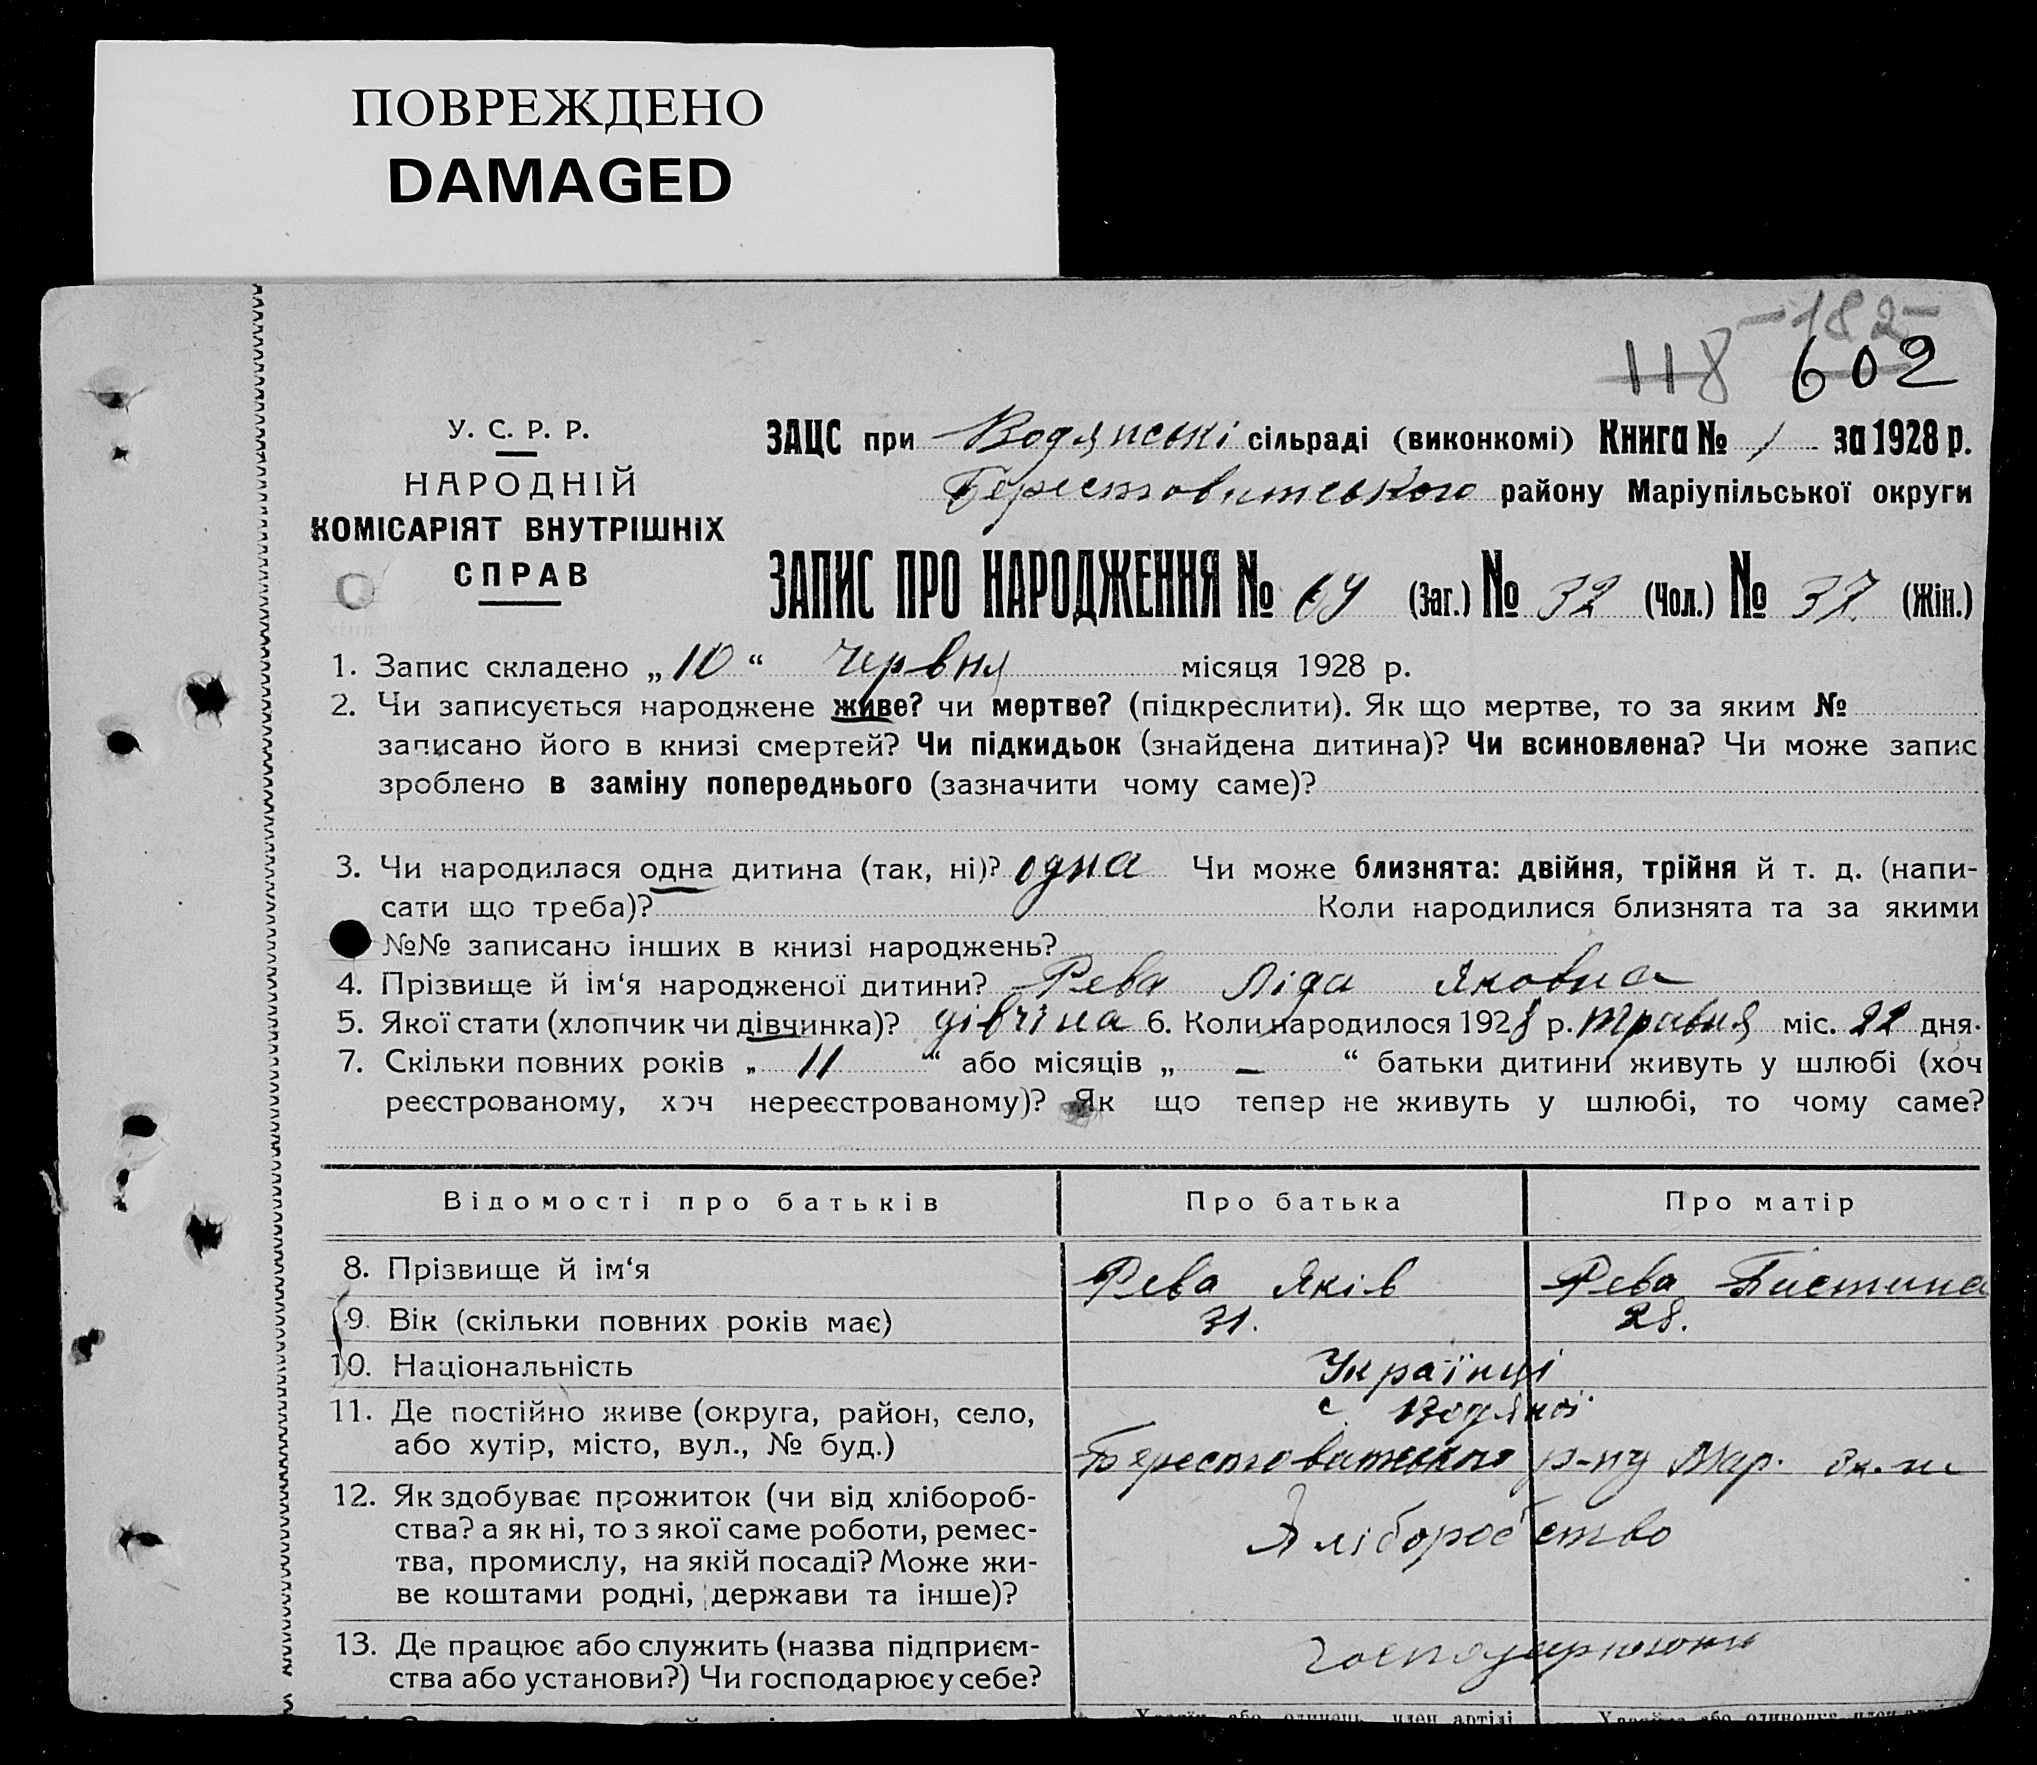 ПОВРЕЖДЕНО
DAMAGED
- 182 -
118 602
У. С. Р. Р.
НАРОДНІЙ
КОМІСАРІЯТ ВНУТРІШНІХ
СПРАВ
ЗАЦС при Водянські сільраді (виконкомі) Книга № 1 за 1928 р.
Берестоватського району Маріупільської округи
ЗАПИС ПРО НАРОДЖЕННЯ № 69 (Заг.) № 32 (Чол.) № 37 (Жін.)
1. Запис складено „10“ червня місяця 1928 р.
2. Чи записується народжене живе? чи мертве? (підкреслити). Як що мертве, то за яким №
записано його в книзі смертей? Чи підкидьок (знайдена дитина)? Чи всиновлена? Чи може запис
зроблено в заміну попереднього (зазначити чому саме)?
3. Чи народилася одна дитина (так, ні)? одна Чи може близнята: двійня, трійня й т. д. (напи-
сати що треба)? Коли народилися близнята та за якими
№№ записано інших в книзі народжень?
4. Прізвище й ім‘я народженої дитини? Рева Ліда Яковна
5. Якої стати (хлопчик чи дівчинка)? дівчіна 6. Коли народилося 1928 р. травня міс. 22 дня.
7. Скільки повних років „ 11 “ або місяців „ — “ батьки дитини живуть у шлюбі (хоч
реєстрованому, хоч нереєстрованому)? Як що тепер не живуть у шлюбі, то чому саме?
Відомості про батьків Про батька Про матір
8. Прізвище й ім‘я Рева Яків Рева Тистина
9. Вік (скільки повних років має) 31. 28.
10. Національність Українці
11. Де постійно живе (округа, район, село, с. Водяної
або хутір, місто, вул., № буд.) Берестоватського р-ну Мар. ок.
12. Як здобуває прожиток (чи від хлібороб-
ства? а як ні, то з якої саме роботи, ремес- Хліборобство
тва, промислу, на якій посаді? Може жи-
ве коштами родні, держави та інше)?
13. Де працює або служить (назва підприєм-
ства або установи?) Чи господарює у себе?